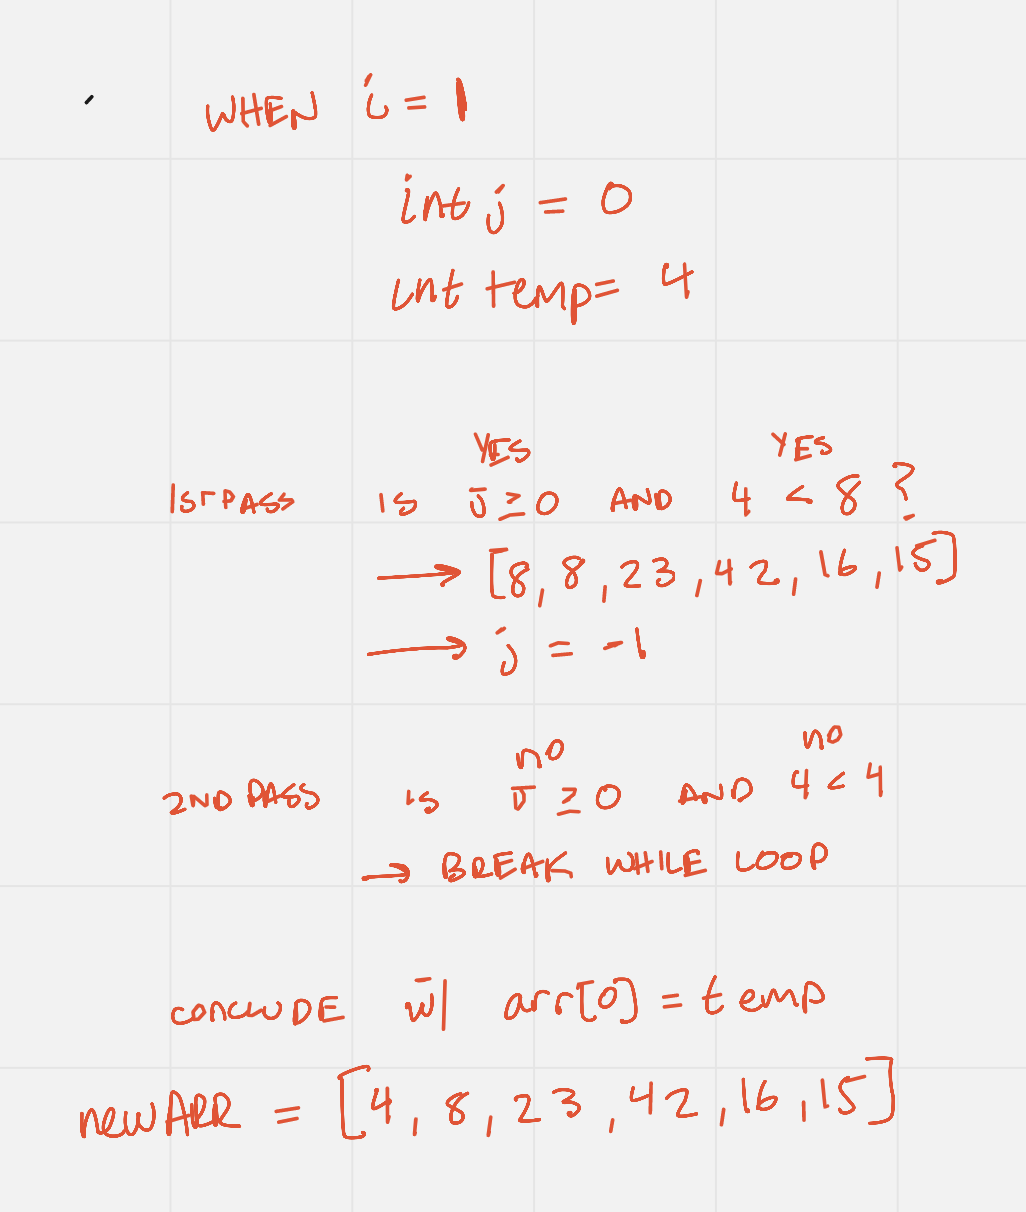 WHEN i = 1
int j = 0
int temp = 4
YES YES
1ST PASS IS J ≥ 0 AND 4 < 8 ?
→ [8, 8, 23, 42, 16, 15]
→ j = -1
no no
2ND PASS IS J ≥ 0 AND 4 < 4
→ BREAK WHILE LOOP
concluDE w| arr[0] = temp
newARR = [4, 8, 23, 42, 16, 15]